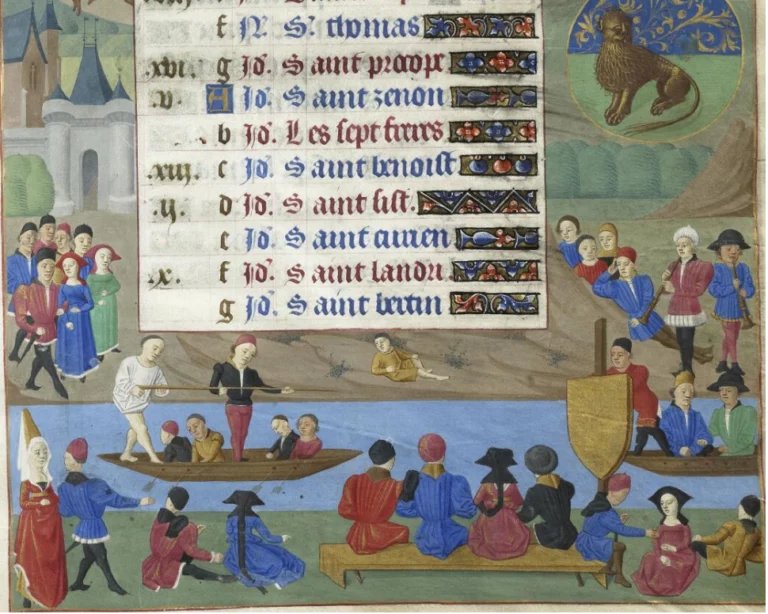 f N. St. thomas
.xvi. g Id. Saint procope
.v. A Id. Saint zenon
b Id. Les sept freres
.xiij. c Id. Saint benoist
.ij. d Id. Saint sist.
e Id. Saint
.x. f Id. Saint landri
g Id. Saint bertin